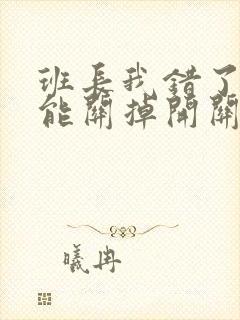 班长我错了
能關掉開關
曦冉